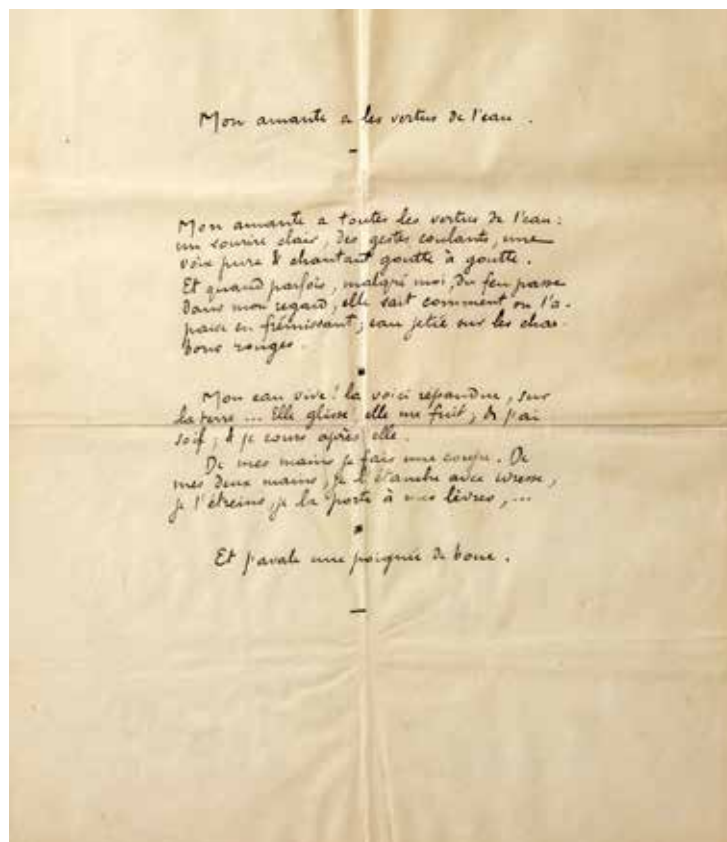 Mon amante a les vertus de l'eau.
Mon amante a toutes les vertus de l'eau :
un sourire clair, des gestes coulants, une
voix pure & chantant goutte à goutte.
Et quand parfois, malgré moi, du feu passe
dans mon regard, elle sait comment on l'a-
paise en frémissant ; eau jetée sur les char-
bons rouges.
Mon eau vive ! la voici répandue, sur
la terre ... Elle glisse elle me fuit, & j'ai
soif, & je cours après elle.
De mes mains je fais une coupe. De
mes deux mains, je l'étanche avec ivresse,
je l'étreins, je la porte à mes lèvres, ...
Et j'avale une poignée de boue.